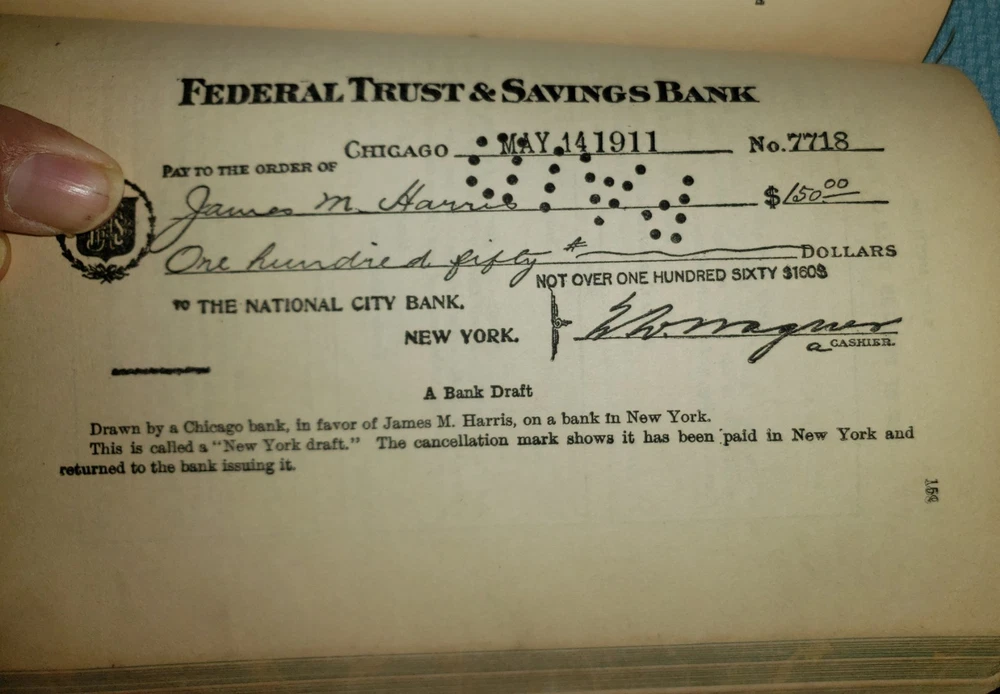 FEDERAL TRUST & SAVINGS BANK
CHICAGO MAY 14 1911 No. 7718
PAY TO THE ORDER OF
James M. Harris $150 00
One hundred fifty DOLLARS
NOT OVER ONE HUNDRED SIXTY $160$
TO THE NATIONAL CITY BANK.
NEW YORK.
Wagner
a CASHIER.
A Bank Draft
Drawn by a Chicago bank, in favor of James M. Harris, on a bank in New York.
This is called a "New York draft." The cancellation mark shows it has been paid in New York and
returned to the bank issuing it.